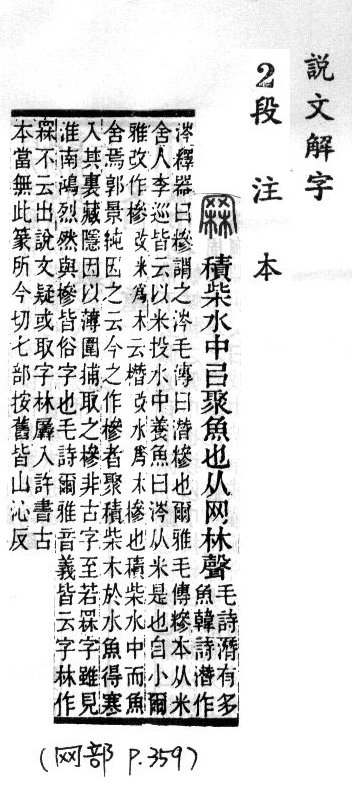 說文解字
2段注本
積柴水中㠯聚魚也从网林聲毛詩潛有多
魚韓詩潛作
涔釋器曰槮謂之涔毛傳曰潛糝也爾雅毛傳糝本从米
舍人李巡皆云以米投水中養魚曰涔从米是也自小爾
雅改作槮改米爲木云橬改水爲木槮也積柴水中而魚
舍焉郭景純因之云今之作槮者聚積柴木於水魚得寒
入其裏藏隱因以薄圍捕取之槮非古字至若罧字雖見
淮南鴻烈然與槮皆俗字也毛詩爾雅音義皆云字林作
罧不云出說文疑或取字林羼入許書古
本當無此篆所今切七部按舊皆山沁反
(网部 P.359)